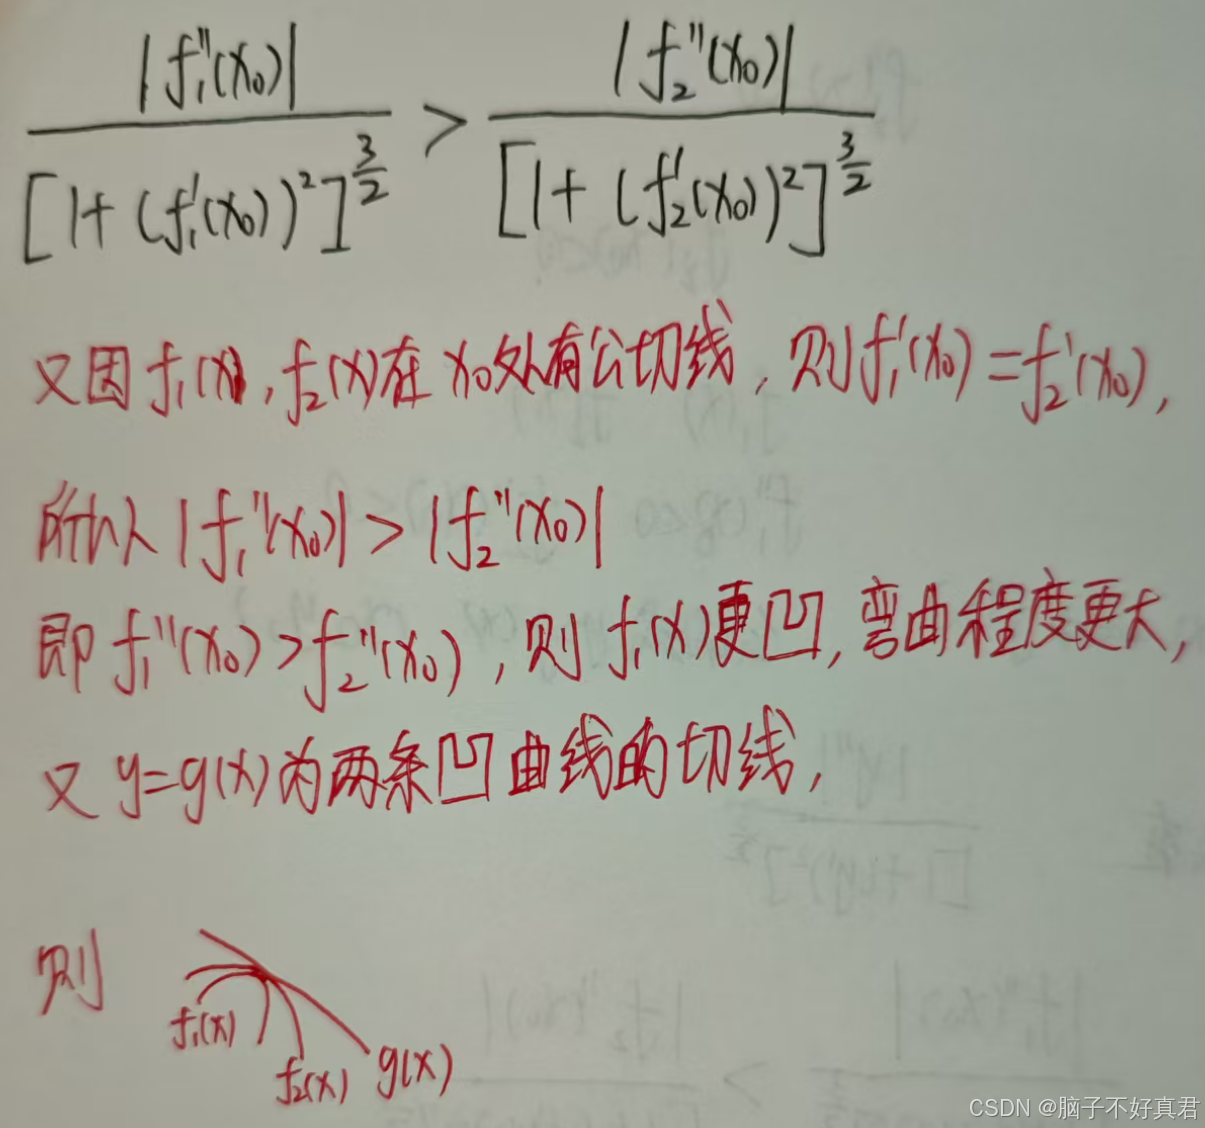 |f₁''(x₀)| / [1+(f₁'(x₀))²]^(3/2) > |f₂''(x₀)| / [1+(f₂'(x₀))²]^(3/2)
又因f₁(x),f₂(x)在x₀处有公切线,则f₁'(x₀)=f₂'(x₀),
所以|f₁''(x₀)|>|f₂''(x₀)|
即f₁''(x₀)>f₂''(x₀),则f₁(x)更凹,弯曲程度更大,
又y=g(x)为两条凹曲线的切线,
则
f₁(x)
f₂(x)
g(x)
CSDN @脑子不好真君